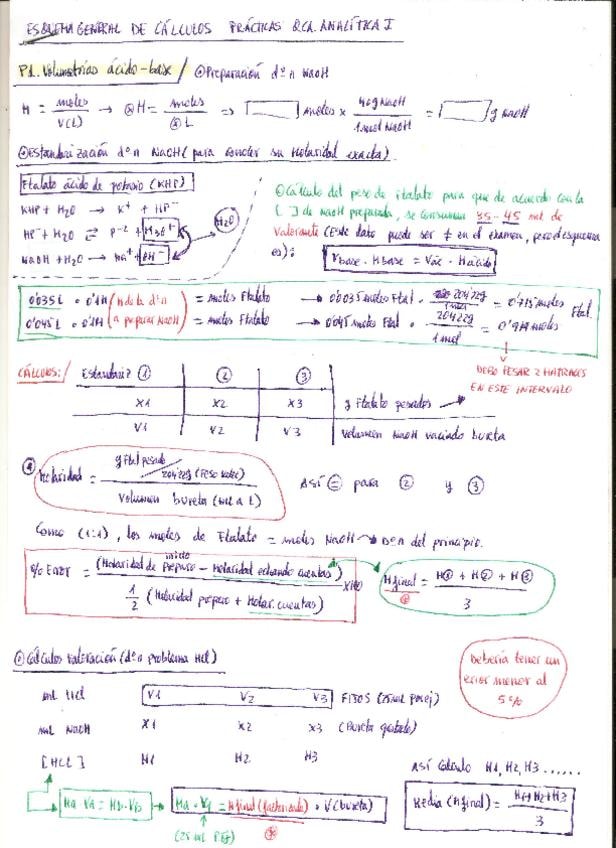 ESQUEMA GENERAL DE CÁLCULOS PRÁCTICAS QCA. ANALÍTICA I
P1. Volumetrías ácido-base / Preparación dºn NaOH
M = moles / V(L) → M = moles / L => [ ] moles x 40g NaOH / 1mol NaOH = [ ] g NaOH
Estandarización dºn NaOH (para conocer su Molaridad exacta)
Ftalato ácido de potasio (KHP)
KHP + H2O → K+ + HP-
HP- + H2O ⇄ P-2 + H3O+
NaOH + H2O → Na+ + OH-
H2O
Cálculo del peso de ftalato para que de acuerdo con la
[ ] de NaOH preparada, se consuman 35-45 mL de
valorante (Este dato puede ser ≠ en el examen, pero el esquema
es): Vbase · Mbase = Vác · Mácido
0'035L · 0'1M (M de la dºn = moles Ftalato → 0'0035 moles Ftal · 204'22g / 1mol = 0'715 moles Ftal.
0'045L · 0'1M a preparar NaOH) = moles Ftalato → 0'0045 moles Ftal · 204'22g / 1mol = 0'919 moles
DEBO PESAR 2 MATRACES
EN ESTE INTERVALO
CÁLCULOS: / Estandariz ① ② ③
X1 X2 X3 g Ftalato pesados
V1 V2 V3 Volumen NaOH vaciado bureta
Molaridad = g Ftal pesado / 204'22g (Peso molec) / Volumen bureta (mL a L)
Así = para ② y ③
Como (1:1), los moles de Ftalato = moles NaOH → Dºn del principio.
% Error = (Molaridad de preparo inicio - Molaridad echando cuentas) / 1/2 (Molaridad preparo + Molar. cuentas) x100
Mfinal = M① + M② + M③ / 3
Cálculos valoración (dºn problema HCl)
Debería tener un
error menor al
5%
mL HCl V1 V2 V3 FIJOS (25mL por ej)
mL NaOH X1 X2 X3 (Bureta gastado)
[HCl] M1 M2 M3
Así calculo M1, M2, M3 ......
Ma · Va = Mb · Vb → Ma · V1 = Mfinal · V(bureta)
(25 mL P.EJ)
Media (Mfinal) = M1+M2+M3 / 3